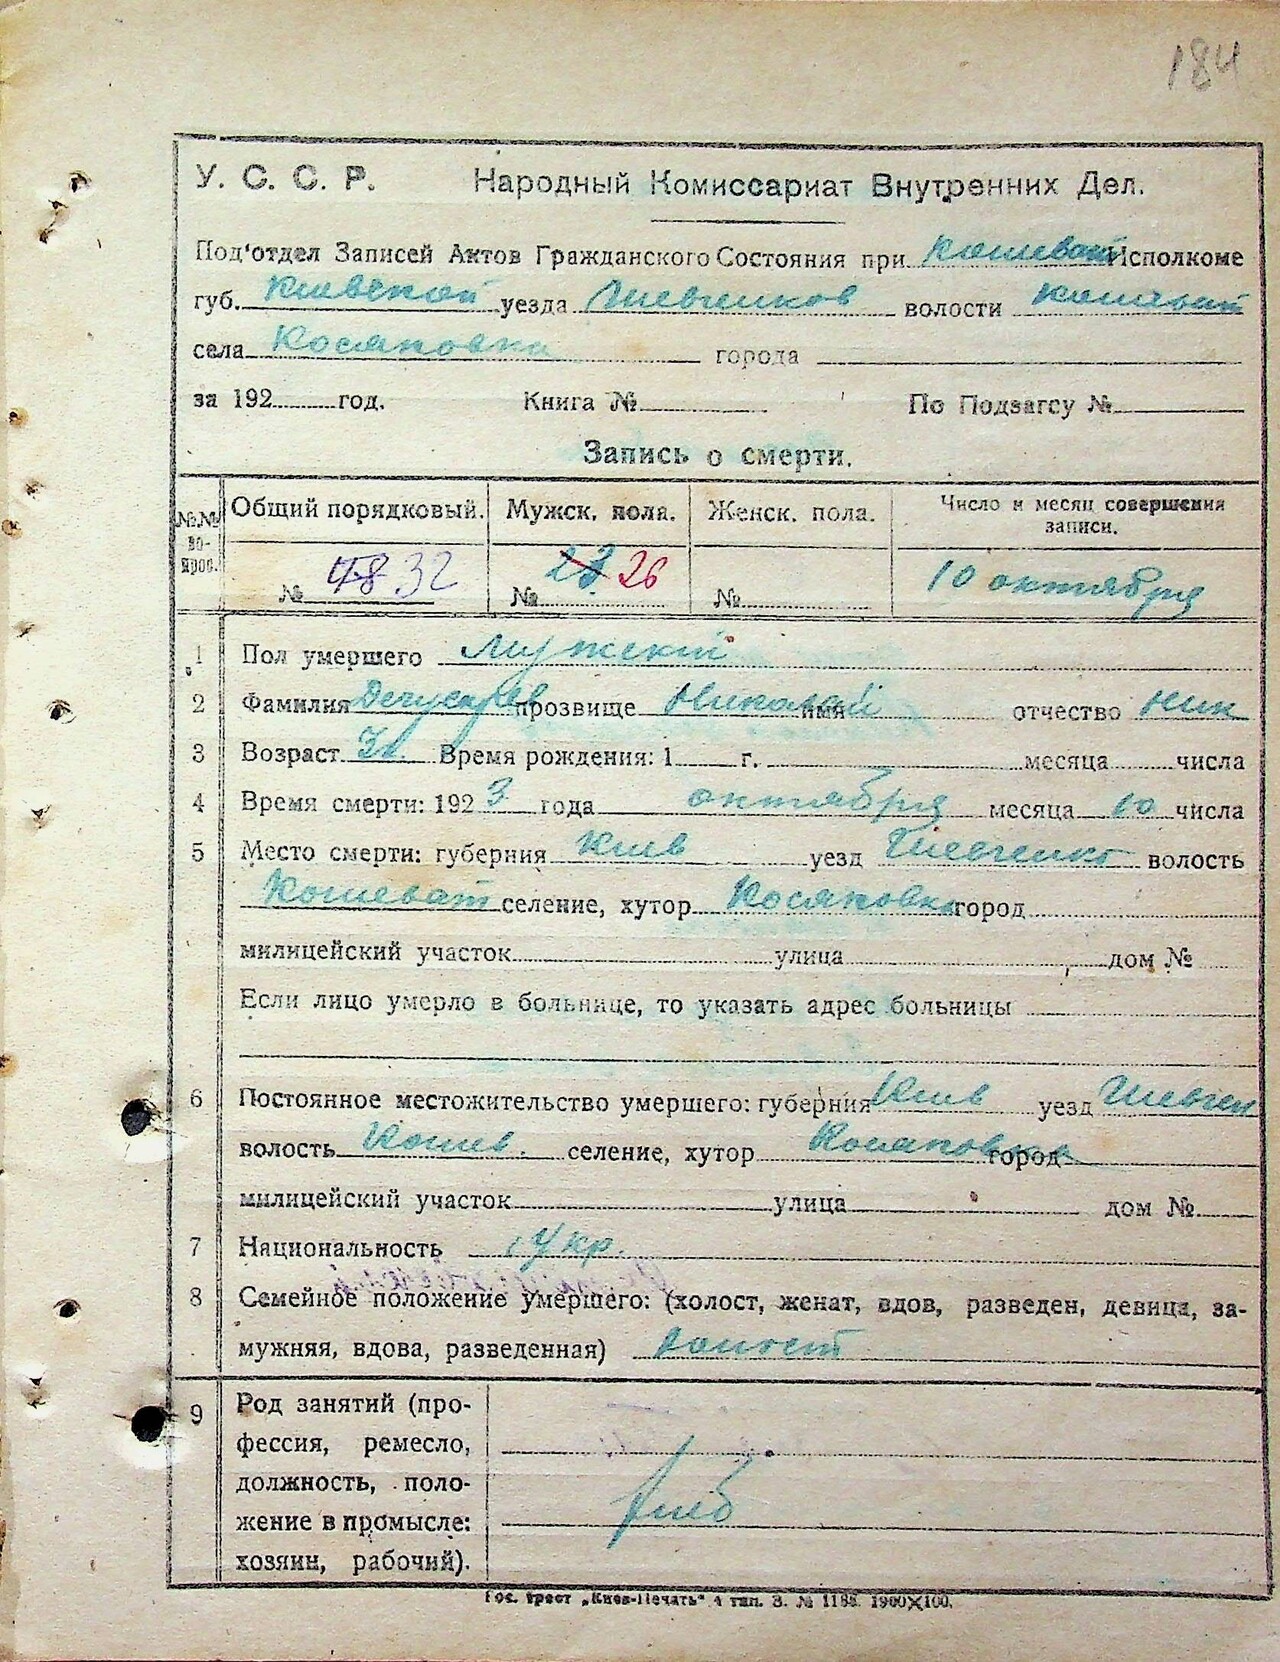 184
У. С. С. Р. Народный Комиссариат Внутренних Дел.
Под'отдел Записей Актов Гражданского Состояния при Кошеват Исполкоме
губ. Киевской уезда Шевченков волости Кошеват
села Косяковка города
за 192 год. Книга № По Подзагсу №
Запись о смерти.
№№ вопрос. Общий порядковый. Мужск. пола. Женск. пола. Число и месяц совершения записи.
№ 48 32 № 23 26 № 10 октября
1 Пол умершего Мужский
2 Фамилия прозвище Николай имя отчество Ник
3 Возраст 3 Время рождения: 1 г. месяца числа
4 Время смерти: 1923 года октября месяца 10 числа
5 Место смерти: губерния Киев уезд Шевченко волость
Кошеват селение, хутор Косяковка город
милицейский участок улица дом №
Если лицо умерло в больнице, то указать адрес больницы
6 Постоянное местожительство умершего: губерния Киев уезд Шевчен
волость Кошев. селение, хутор Косяковка город
милицейский участок улица дом №
7 Национальность Укр.
8 Семейное положение умершего: (холост, женат, вдов, разведен, девица, за-
мужняя, вдова, разведенная) холост
9 Род занятий (про-
фессия, ремесло,
должность, поло-
жение в промысле:
хозяин, рабочий).
Гос. трест „Киев-Печать" 4 тип. З. № 1188. 1900X100.